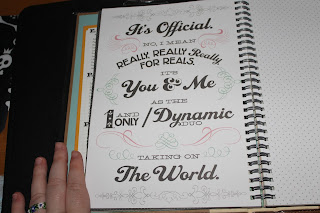 It's Official.
NO, I MEAN
REALLY, REALLY Really
FOR REALS.
IT'S
You & Me
AS THE
1 AND ONLY / Dynamic DUO
TAKING ON
The World.